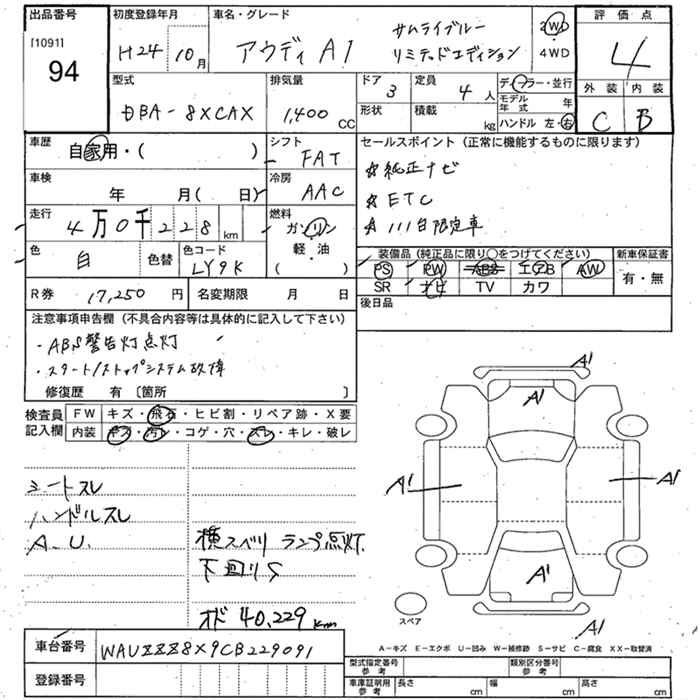 出品番号 初度登録年月 車名・グレード 評価点
[1091] 94 H24 10月 アウディ A1 サムライブルー リミテッドエディション 2WD 4WD 4
型式 排気量 ドア 3 定員 4人 ディーラー・並行 外装 内装
DBA-8XCAX 1,400CC 形状 積載 kg モデル年式 年 ハンドル 左・右 C B
車歴 自家用・( ) シフト FAT セールスポイント(正常に機能するものに限ります)
車検 年 月( 日) 冷房 AAC ☆純正ナビ
☆ETC
走行 4万0千228km 燃料 ガソリン・軽・油( ) ☆111台限定車
色 白 色替 色コード LY9K 装備品(純正品に限り○をつけてください) 新車保証書
PS PW ABS エアB AW 有・無
R券 17,250円 名変期限 月 日 SR ナビ TV カワ
後日品
注意事項申告欄(不具合内容等は具体的に記入して下さい)
・ABS警告灯点灯
・スタート/ストップシステム故障
修復歴 有〔箇所 〕
検査員記入欄 FW キズ・飛石・ヒビ割・リペア跡・X要
内装 キズ・汚レ・コゲ・穴・スレ・キレ・破レ
シートスレ
ハンドルスレ
A.U.
横スベリ ランプ点灯
下回りS
オド 40,229km
A1
A1
A1
A1
A1
A1
スペア
A-キズ E-エクボ U-凹み W-補修跡 S-サビ C-腐食 XX-取替済
車台番号 WAUZZZ8X9CB229091
登録番号
型式指定番号参考 類別区分番号参考
車庫証明用参考 長さ cm 幅 cm 高さ cm